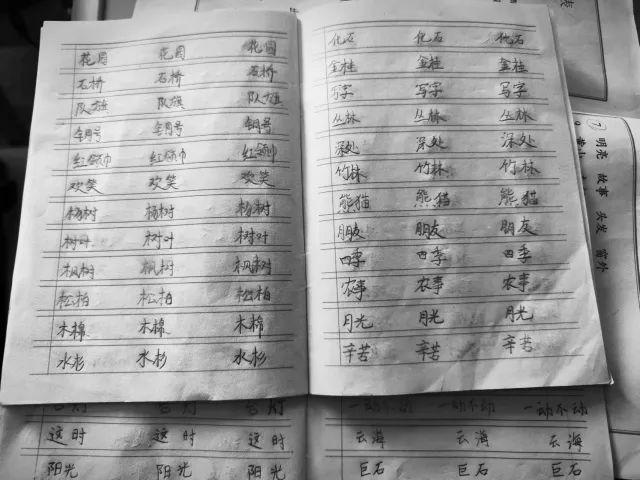 花园 花园 花园
石桥 石桥 石桥
队旗 队旗 队旗
铜号 铜号 铜号
红领巾 红领巾 红领巾
欢笑 欢笑 欢笑
杨树 杨树 杨树
树叶 树叶 树叶
枫树 枫树 枫树
松柏 松柏 松柏
木棉 木棉 木棉
水杉 水杉 水杉
化石 化石 化石
金桂 金桂 金桂
写字 写字 写字
丛林 丛林 丛林
深处 深处 深处
竹林 竹林 竹林
熊猫 熊猫 熊猫
朋友 朋友 朋友
四季 四季 四季
农事 农事 农事
月光 月光 月光
辛苦 辛苦 辛苦
这时 这时 这时
阳光 阳光 阳光
一动不动 一动不动 一动不动
云海 云海 云海
巨石 巨石 巨石
⑦ 明亮 故事 头发 窗外